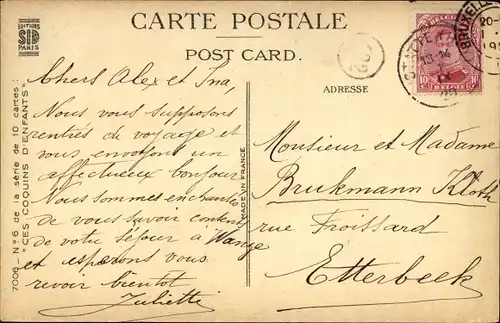 CARTE POSTALE
POST CARD.
ADRESSE
EDITIONS
SID
PARIS
7006 – N° 6 de la série de 10 cartes :
"CES COQUINS D'ENFANTS"
MADE IN FRANCE
Chers Alex et Ina,
Nous vous supposons
rentrés de voyage et
vous envoyons un
affectueux bonjour
Nous sommes enchantés
de vous savoir contents
de votre séjour à Wange
et espérons vous
revoir bientôt
Juliette
Monsieur et Madame
Brukmann Kloth
rue Froissard
Etterbeek
BELGIË
10 10
BELGIQUE
BRUXELLES
20-
1
19
13-14